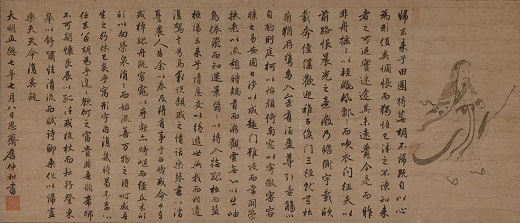 歸去來兮田園將蕪胡不歸既自以心
為形役奚惆悵而獨悲悟已往之不諫知來
者之可追實迷途其未遠覺今是而昨
非舟搖搖以輕颺風飄飄而吹衣問征夫以
前路恨晨光之熹微乃瞻衡宇載欣
載奔僮僕歡迎稚子候門三徑就荒松
菊猶存攜幼入室有酒盈尊引壺觴以
自酌眄庭柯以怡顏倚南窗以寄傲審容
膝之易安園日涉以成趣門雖設而常關策
扶老以流憩時矯首而遐觀雲無心以出岫
鳥倦飛而知還景翳翳以將入撫孤松而盤
桓歸去來兮請息交以絕遊世與我而相遺
復駕言兮焉求悅親戚之情話樂琴書以消
憂農人告余以春及將有事于西疇或命巾車
或棹孤舟既窈窕以尋壑亦崎嶇而經丘木欣欣
以向榮泉涓涓而始流善萬物之得時感吾
生之行休已矣乎寓形宇內復幾時曷不委心
任去留胡為乎遑遑欲何之富貴非吾願帝鄉
不可期懷良辰以孤往或植杖而耘耔登東
皋以舒嘯臨清流而賦詩聊乘化以歸盡
樂夫天命復奚疑
大明正德七年七月八日思齋仲和書